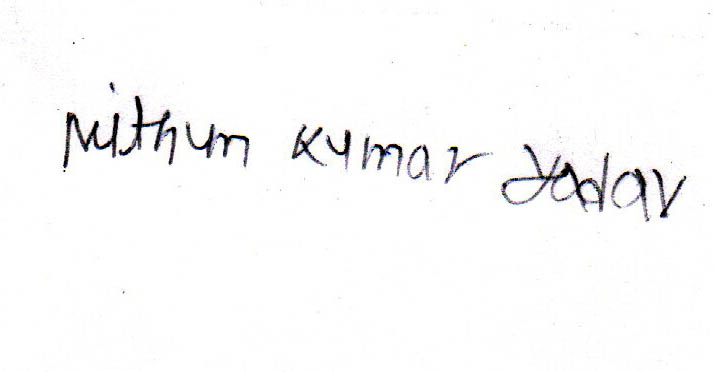 Mithun Kumar Yadav